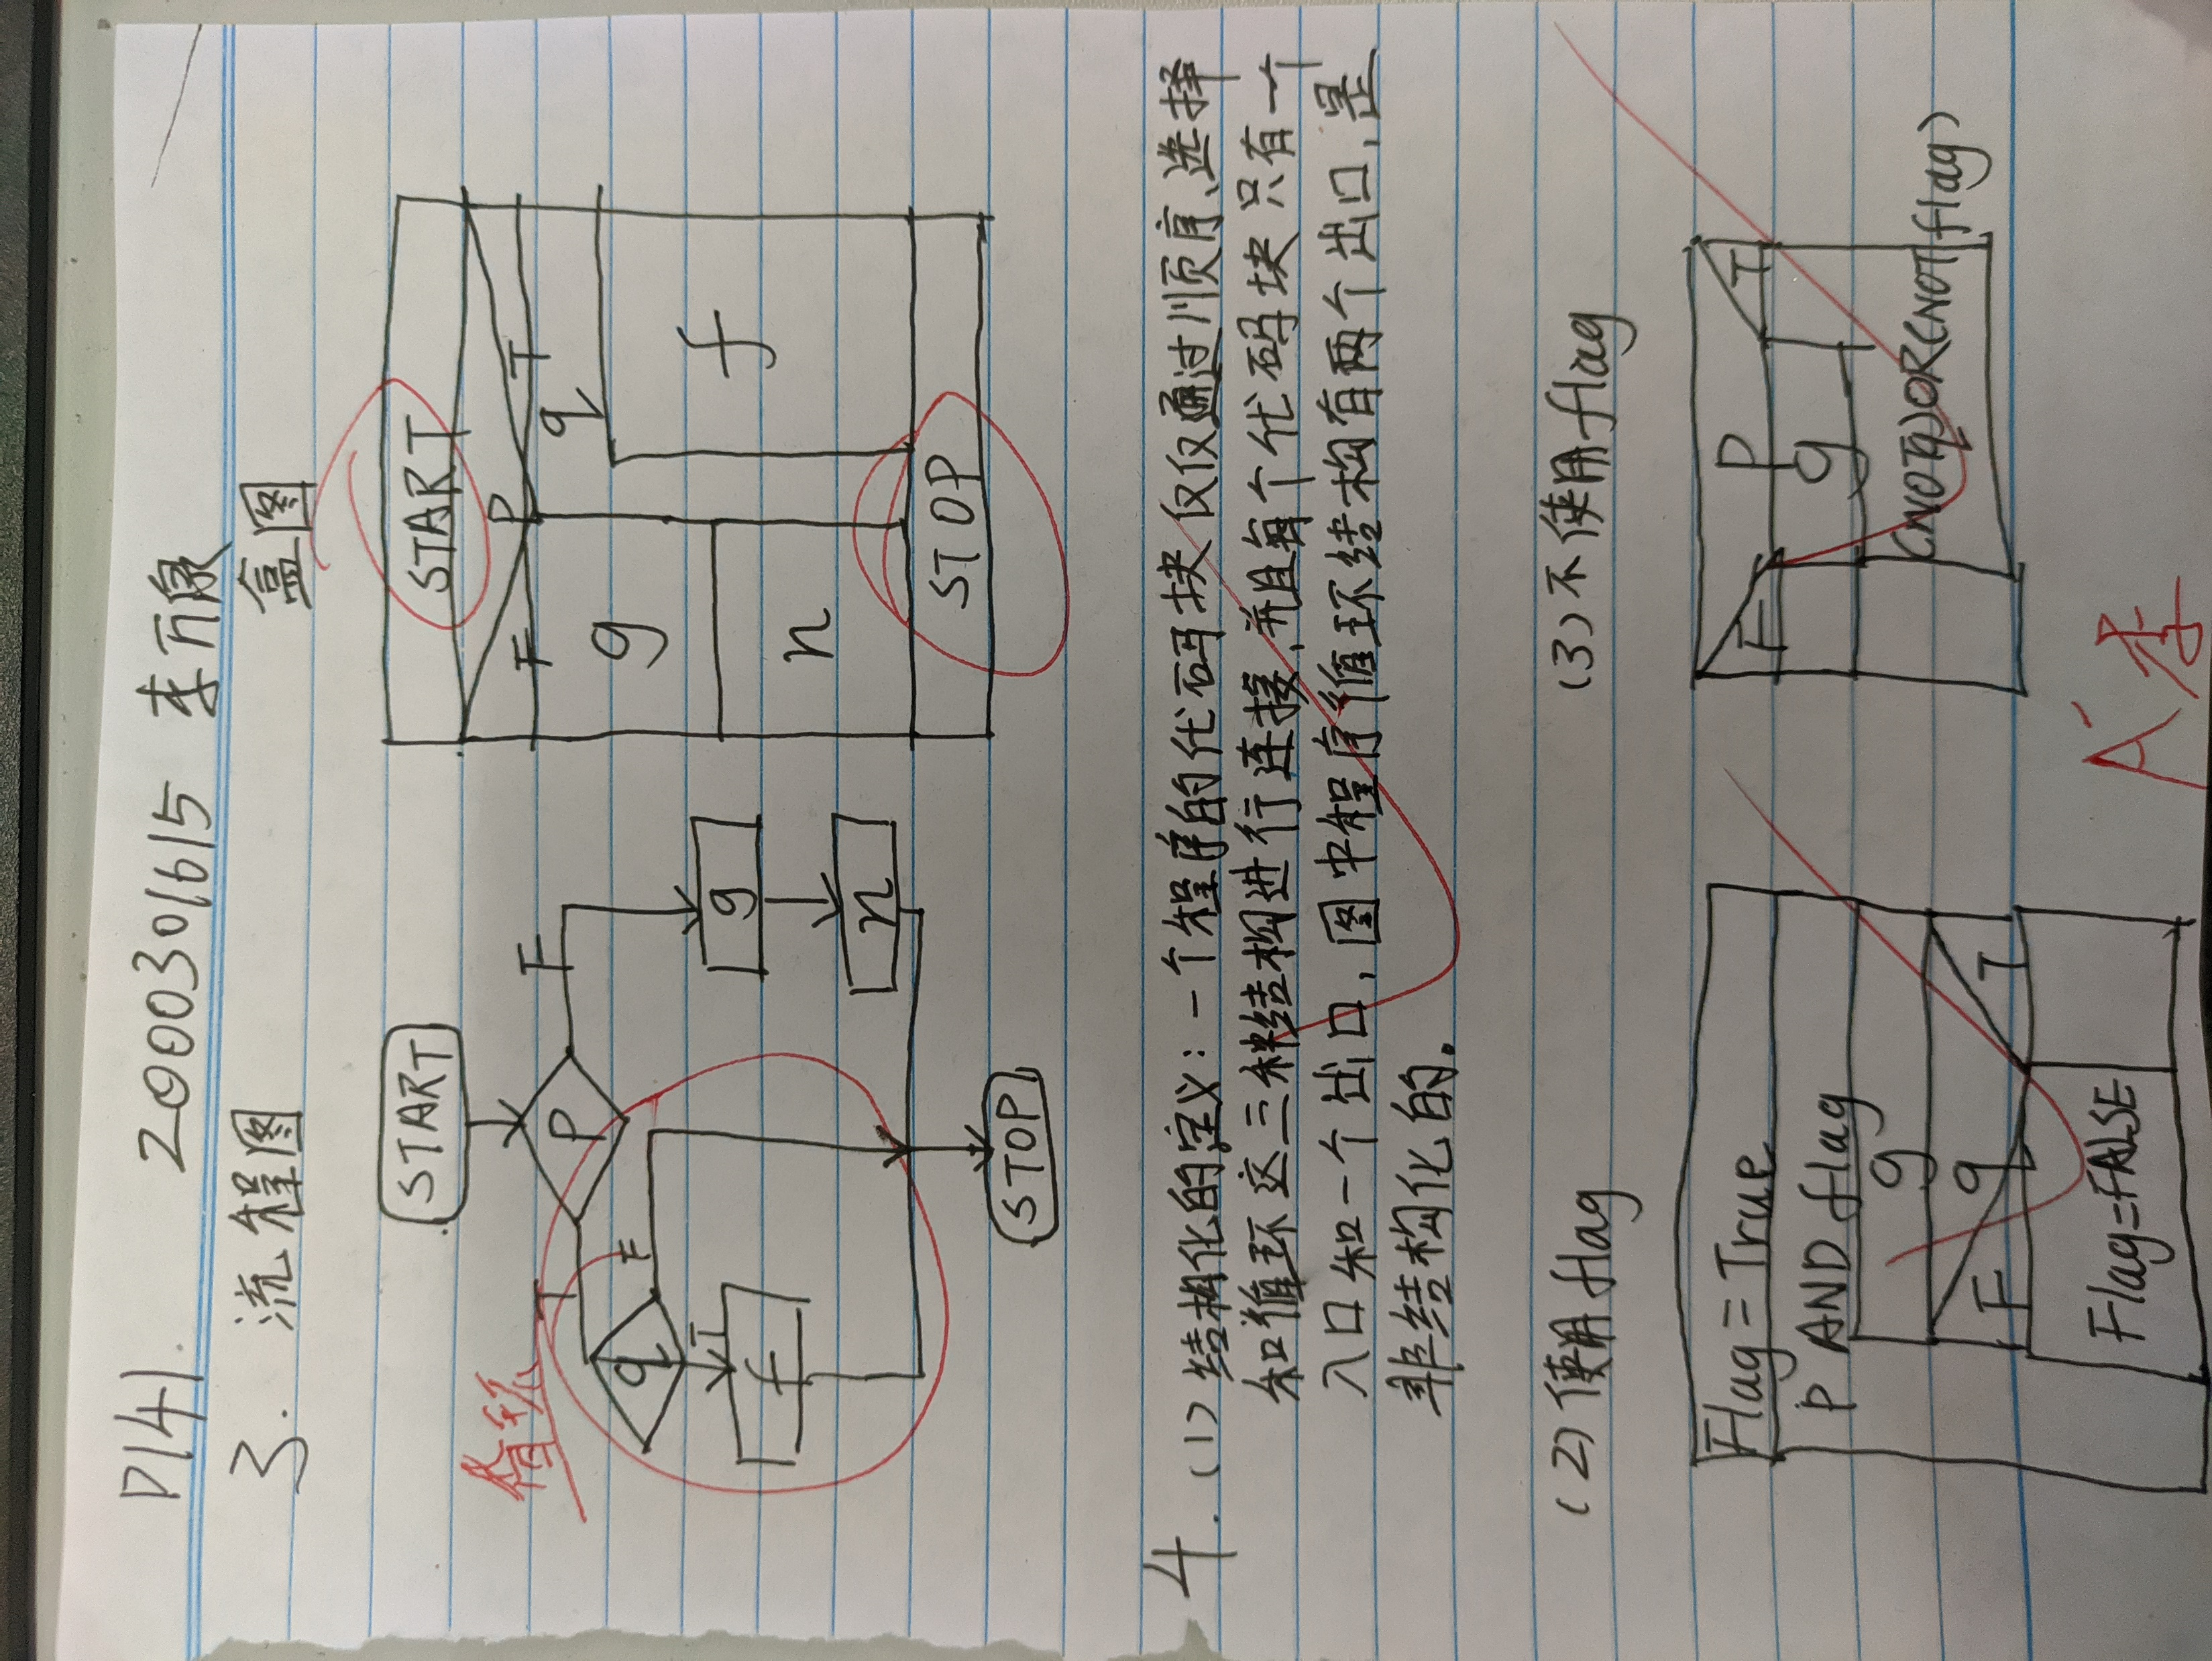 P141. 2000301615 李万泉
3. 流程图 盒图
START
P
T
F
q
F
T
f
g
n
STOP
START
F P T
g
q
n
f
STOP
4. (1) 结构化的定义:一个程序的代码块仅仅通过顺序、选择
和循环这三种结构进行连接,并且每个代码块只有一个
入口和一个出口,图中程序循环结构有两个出口,是
非结构化的。
(2) 使用flag (3) 不使用flag
Flag=True
P AND flag
g
F q T
Flag=FALSE
F P T
g
(NOTq)OR(NOT flag)
A⁻